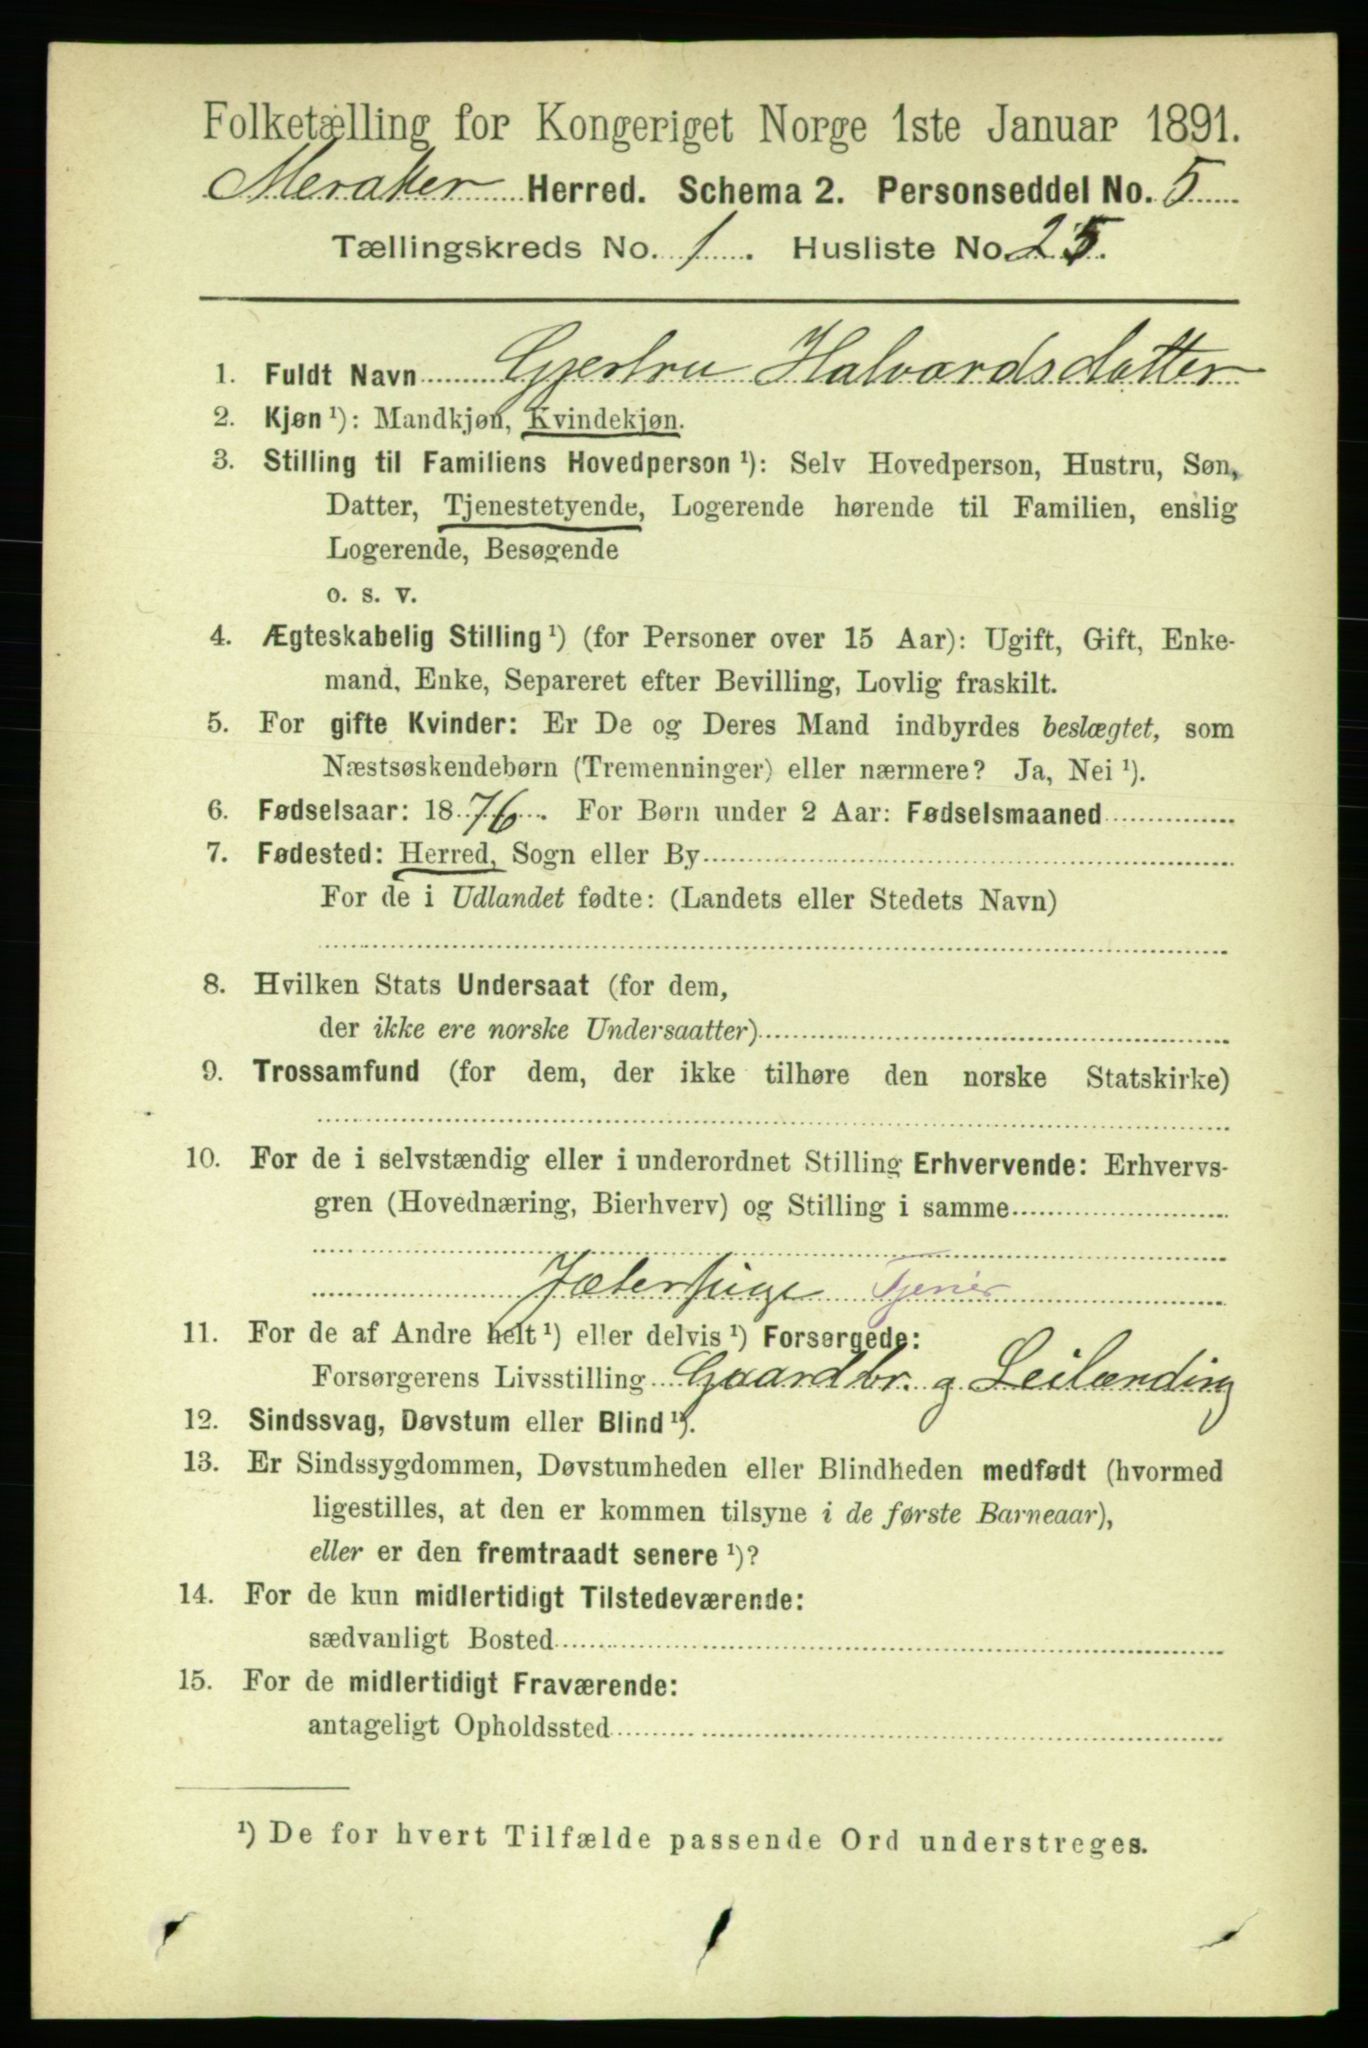 Folketælling for Kongeriget Norge 1ste Januar 1891.
Meraker Herred. Schema 2. Personseddel No. 5
Tællingskreds No. 1. Husliste No. 25.
1. Fuldt Navn Gjertru Halvardsdatter
2. Kjøn ¹): Mandkjøn, Kvindekjøn.
3. Stilling til Familiens Hovedperson ¹): Selv Hovedperson, Hustru, Søn,
Datter, Tjenestetyende, Logerende hørende til Familien, enslig
Logerende, Besøgende
o. s. v.
4. Ægteskabelig Stilling ¹) (for Personer over 15 Aar): Ugift, Gift, Enke-
mand, Enke, Separeret efter Bevilling, Lovlig fraskilt.
5. For gifte Kvinder: Er De og Deres Mand indbyrdes beslægtet, som
Næstsøskendebørn (Tremenninger) eller nærmere? Ja, Nei ¹).
6. Fødselsaar: 1876. For Børn under 2 Aar: Fødselsmaaned
7. Fødested: Herred, Sogn eller By
For de i Udlandet fødte: (Landets eller Stedets Navn)
8. Hvilken Stats Undersaat (for dem,
der ikke ere norske Undersaatter)
9. Trossamfund (for dem, der ikke tilhøre den norske Statskirke)
10. For de i selvstændig eller i underordnet Stilling Erhvervende: Erhvervs-
gren (Hovednæring, Bierhverv) og Stilling i samme
Jæterpige Tjener
11. For de af Andre helt ¹) eller delvis ¹) Forsørgede:
Forsørgerens Livsstilling Gaardbr. g Leilænding
12. Sindssvag, Døvstum eller Blind ¹).
13. Er Sindssygdommen, Døvstumheden eller Blindheden medfødt (hvormed
ligestilles, at den er kommen tilsyne i de første Barneaar),
eller er den fremtraadt senere ¹)?
14. For de kun midlertidigt Tilstedeværende:
sædvanligt Bosted
15. For de midlertidigt Fraværende:
antageligt Opholdssted
¹) De for hvert Tilfælde passende Ord understreges.